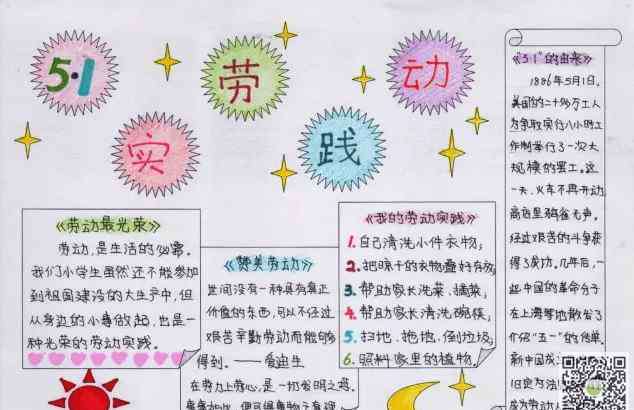 5·1
劳
动
实
践
《劳动最光荣》
劳动,是生活的必需。
我们小学生虽然还不能参加
到祖国建设的大生产中,但
从身边的小事做起,也是一
种光荣的劳动实践。
《赞美劳动》
世间没有一种具有真正
价值的东西,可以不经过
艰苦辛勤劳动而能够
得到。——爱迪生
在劳力上劳心,是一切发明之母。
《我的劳动实践》
1.自己清洗小件衣物;
2.把晾干的衣物叠好存放;
3.帮助家长洗菜、摘菜;
4.帮助家长清洗碗筷;
5.扫地、拖地、倒垃圾;
6.照料家里的植物。
《“5·1”的由来》
1886年5月1日,
美国的二十多万工人
为争取实行八小时工
作制举行了一次大
规模的罢工。这
一天,火车不再开动
商店里鸦雀无声。
经过艰苦的斗争获
得了成功。几年后,一
些中国的革命分子
在上海等地散发了
介绍“五一”的传单。
新中国成
旧定为法
成为劳动人